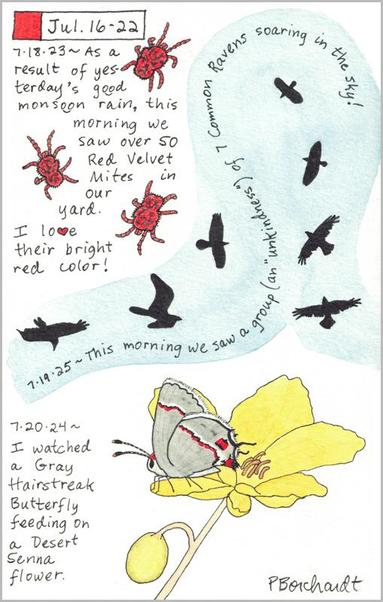 Jul. 16-22
7.18.23~ As a
result of yes-
terday's good
monsoon rain, this
morning we
saw over 50
Red Velvet
Mites in
our
yard.
I love
their bright
red color!
7.19.25~This morning we saw a group (an "unkindness") of 7 Common Ravens soaring in the sky!
7.20.24~
I watched
a Gray
Hairstreak
Butterfly
feeding on
a Desert
Senna
flower.
PBorchardt